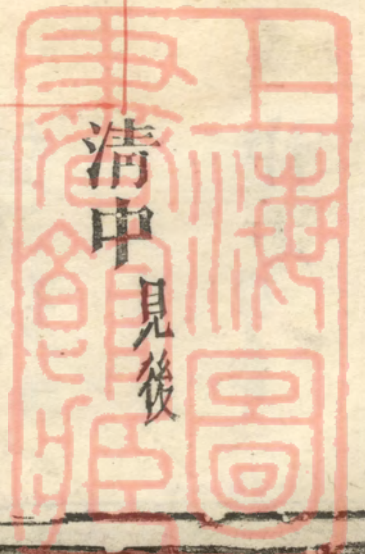 清中見後
上海圖
書館藏